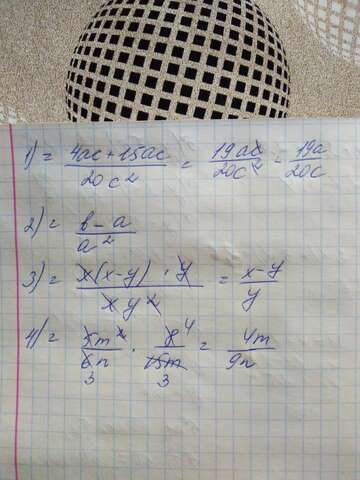 1) = 4ac + 15ac / 20c² = 19ac / 20c² = 19a / 20c
2) = b - a / a²
3) = x(x-y) · y / xy² = x-y / y
4) = 5m² / 6n 3 · 8 4 / 15m 3 = 4m / 9n